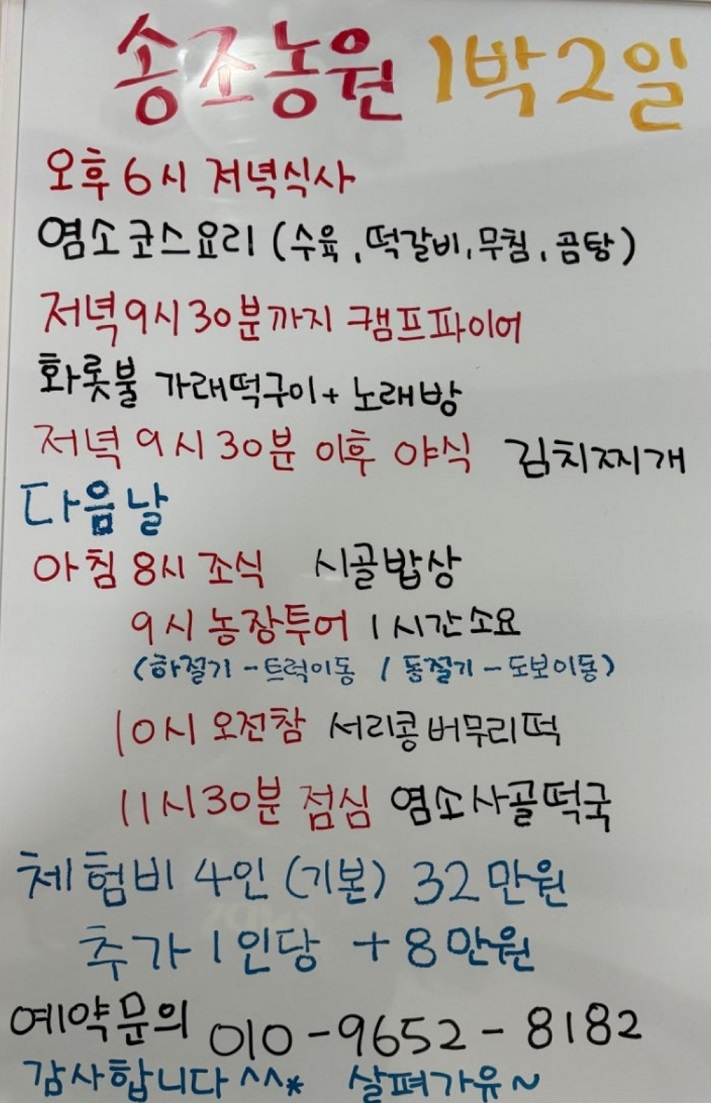 송조농원 1박2일
오후 6시 저녁식사
염소코스요리 (수육, 떡갈비, 무침, 곰탕)
저녁 9시 30분까지 캠프파이어
화롯불 가래떡구이 + 노래방
저녁 9시 30분 이후 야식 김치찌개
다음날
아침 8시 조식 시골밥상
9시 농장투어 1시간소요
(하절기 - 트럭이동 / 동절기 - 도보이동)
10시 오전참 서리콩버무리떡
11시30분 점심 염소사골떡국
체험비 4인 (기본) 32만원
추가 1인당 + 8만원
예약문의 010-9652-8182
감사합니다 ^^* 살펴가유~